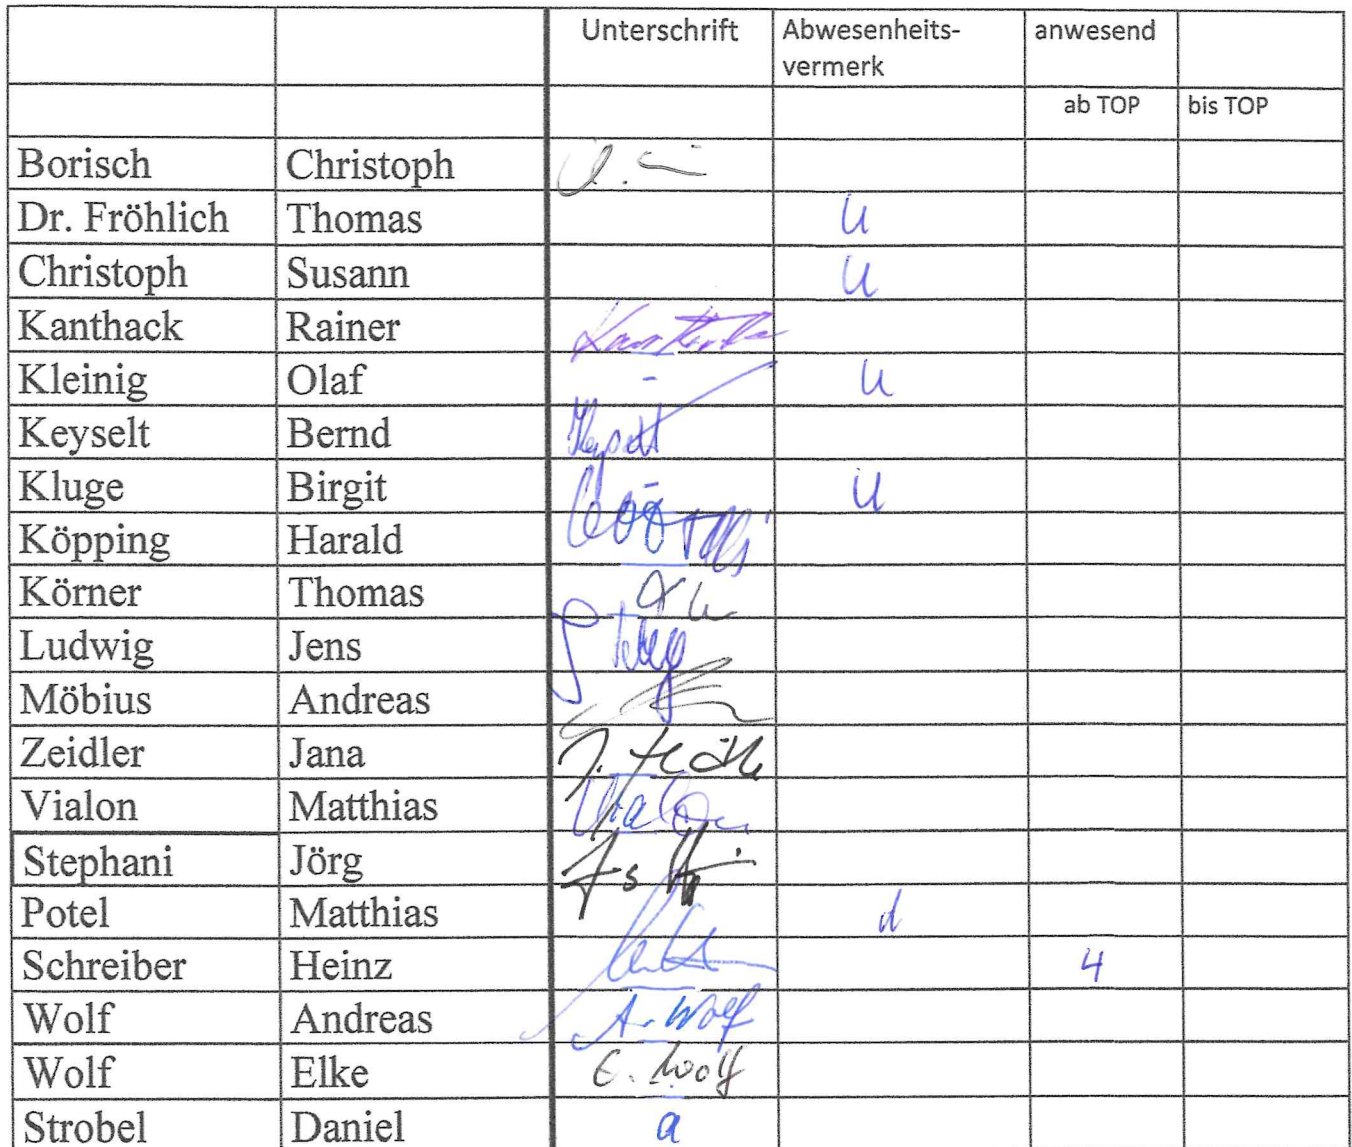 Unterschrift Abwesenheits- anwesend
vermerk
ab TOP bis TOP
Borisch Christoph
Dr. Fröhlich Thomas U
Christoph Susann U
Kanthack Rainer
Kleinig Olaf U
Keyselt Bernd Keyselt
Kluge Birgit U
Köpping Harald
Körner Thomas
Ludwig Jens
Möbius Andreas
Zeidler Jana
Vialon Matthias Vialon
Stephani Jörg
Potel Matthias d
Schreiber Heinz 4
Wolf Andreas A. Wolf
Wolf Elke E. Wolf
Strobel Daniel a